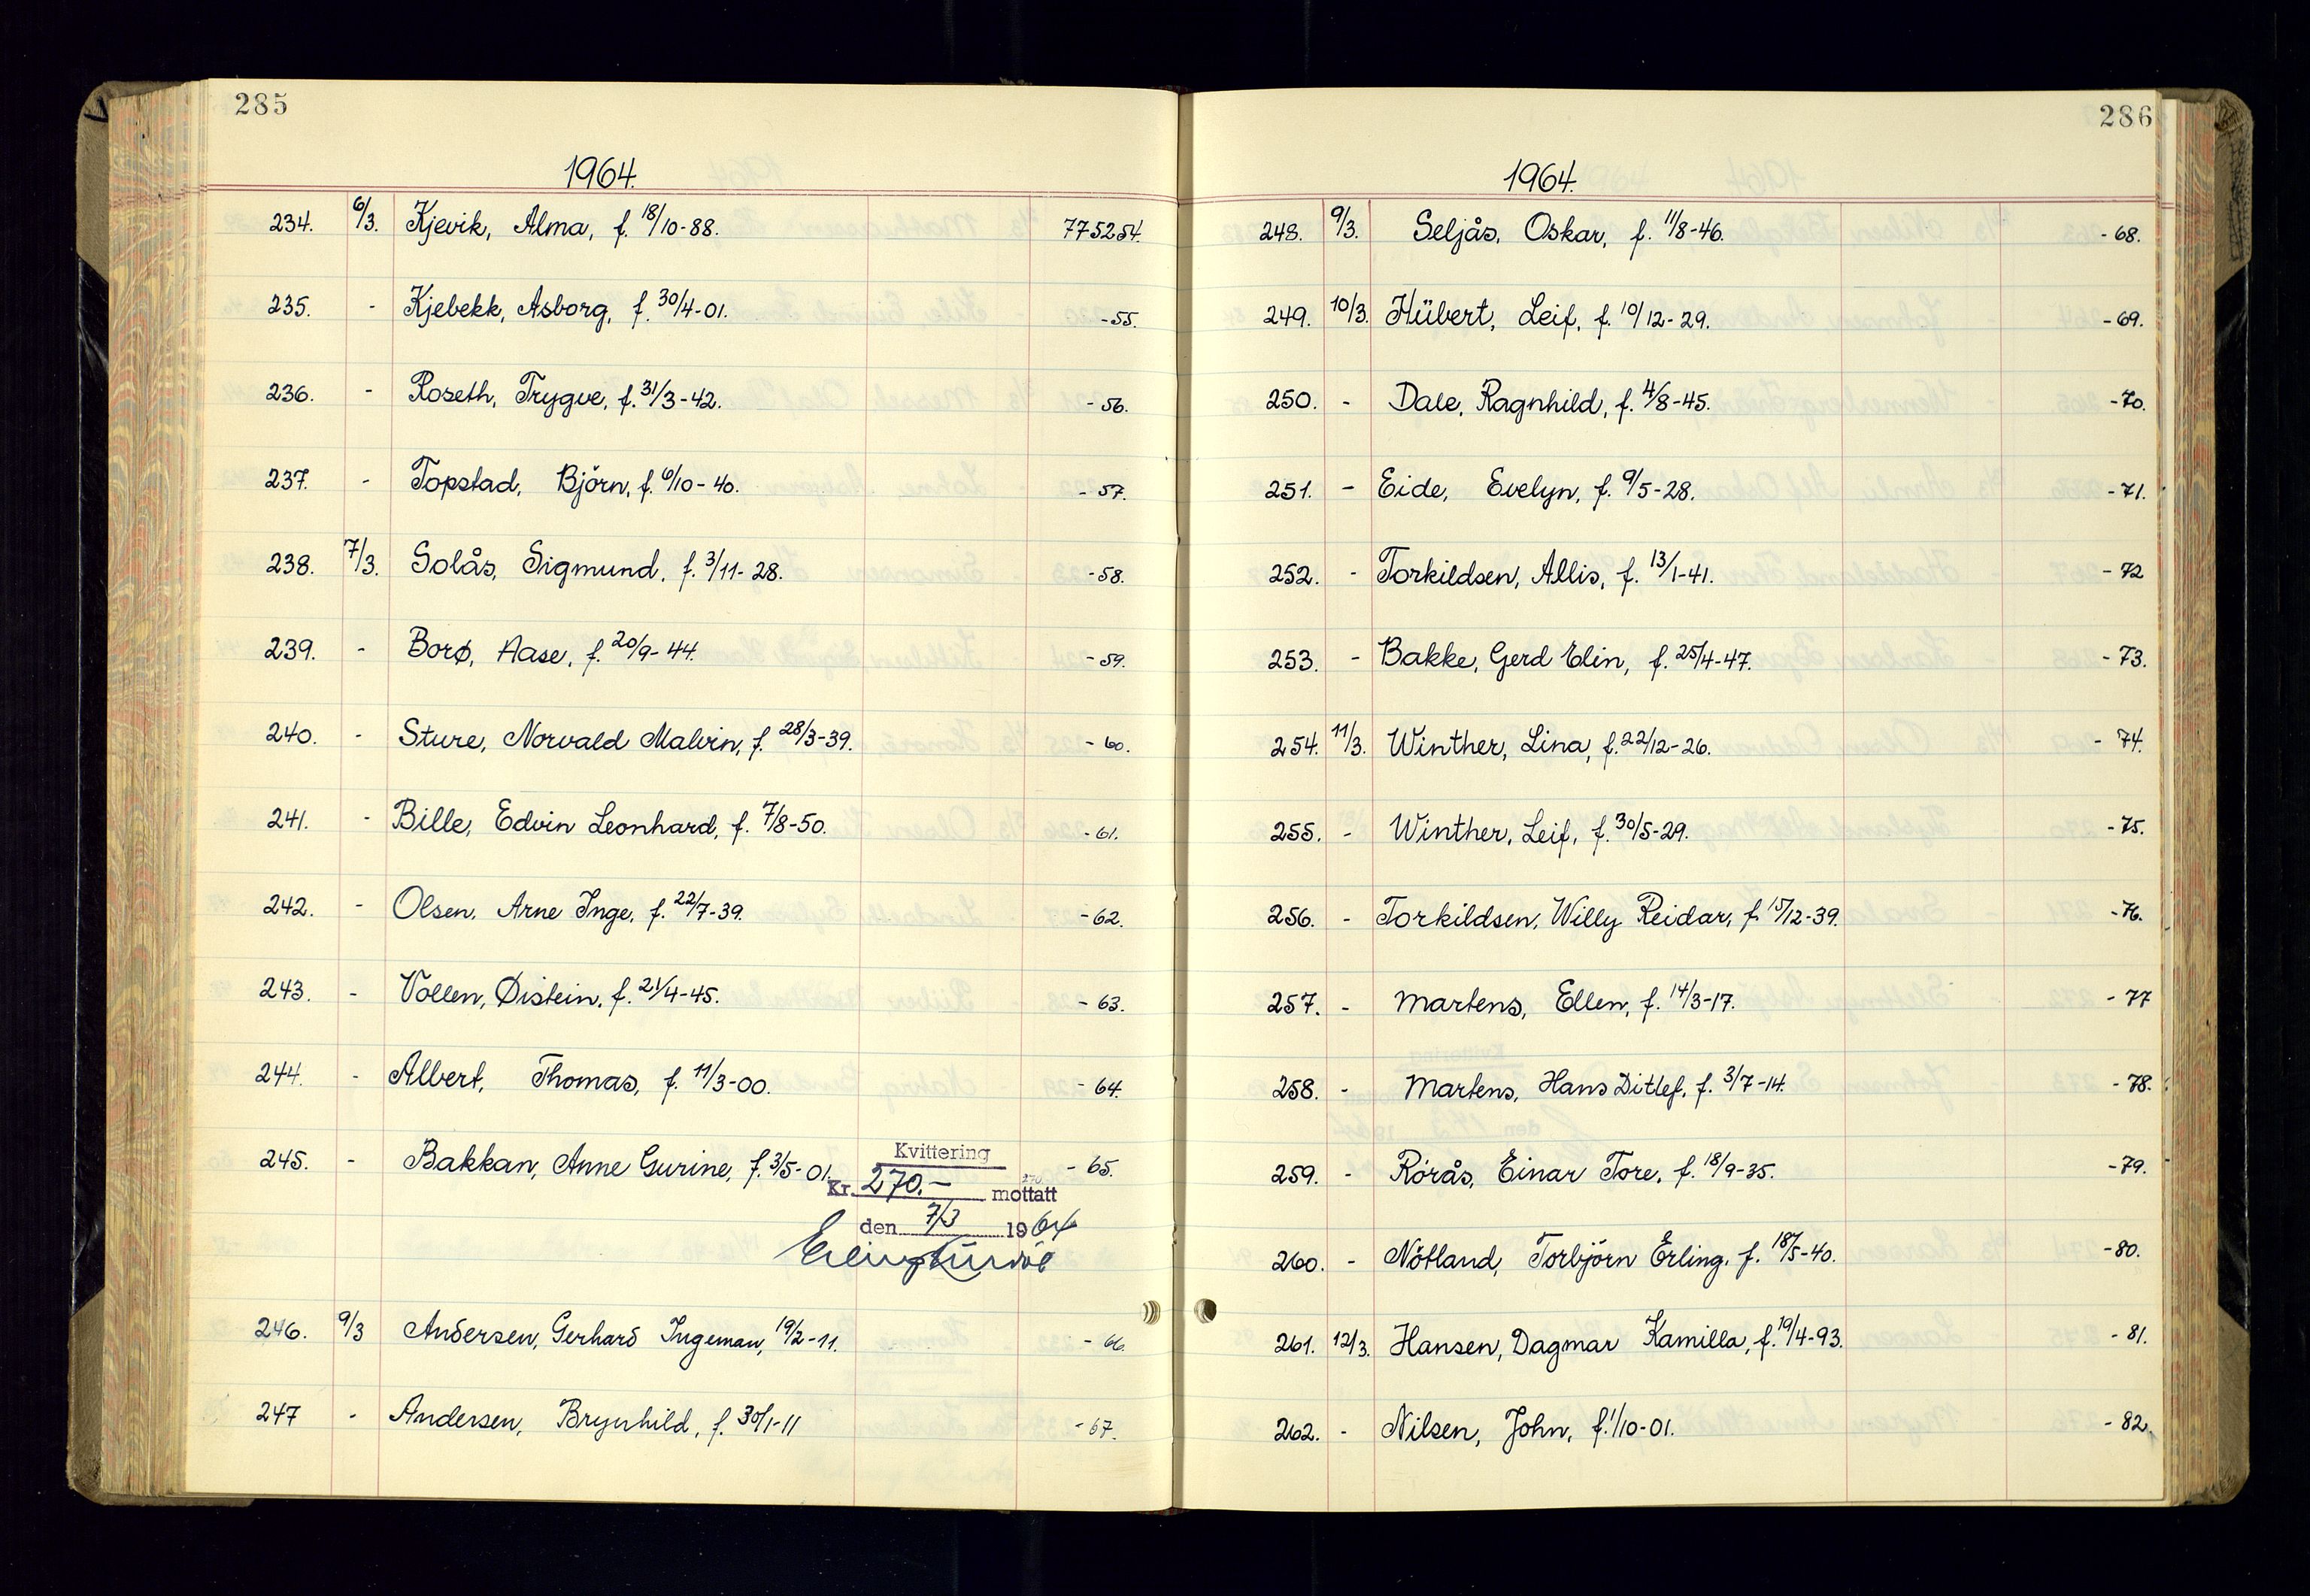 285
1964.
234. 6/3. Kjevik, Alma, f. 18/10-88. 775254.
235. - Kjebekk, Asborg, f. 30/4-01. -55.
236. - Roseth, Trygve, f. 31/3-42. -56.
237. - Topstad, Björn, f. 6/10-40. -57.
238. 7/3. Solås, Sigmund, f. 3/11-28. -58.
239. - Borø, Aase, f. 20/9-44. -59.
240. - Sture, Norvald Malvin, f. 28/3-39. -60.
241. - Bille, Edvin Leonhard, f. 7/8-50. -61.
242. - Olsen, Arne Inge, f. 22/7-39. -62.
243. - Vollen, Øistein, f. 21/4-45. -63.
244. - Albert, Thomas, f. 11/3-00. -64.
245. - Bakkan, Anne Gurine, f. 3/5-01. -65.
Kvittering
Kr. 270.- mottatt
den 7/3 1964
246. 9/3 Andersen, Gerhard Ingeman, 19/2-11. -66.
247 - Andersen, Brynhild, f. 30/1-11 -67.
286
1964.
248. 9/3. Seljås, Oskar, f. 11/8-46. -68.
249. 10/3. Hübert, Leif, f. 10/12-29. -69.
250. - Dale, Ragnhild, f. 4/8-45. -70.
251. - Eide, Evelyn, f. 9/5-28. -71.
252. - Torkildsen, Allis, f. 13/1-41. -72
253. - Bakke, Gerd Elin, f. 25/4-47. -73.
254. 11/3. Winther, Lina, f. 22/12-26. -74.
255. - Winther, Leif, f. 30/5-29. -75.
256. - Torkildsen, Willy Reidar, f. 15/12-39. -76.
257. - Martens, Ellen, f. 14/3-17. -77
258. - Martens, Hans Ditlef, f. 3/7-14. -78.
259. - Rörås, Einar Tore, f. 18/9-35. -79.
260. - Nötland, Torbjörn Erling, f. 18/5-40. -80.
261. 12/3. Hansen, Dagmar Kamilla, f. 19/4-93. -81.
262. - Nilsen, John, f. 1/10-01. -82.